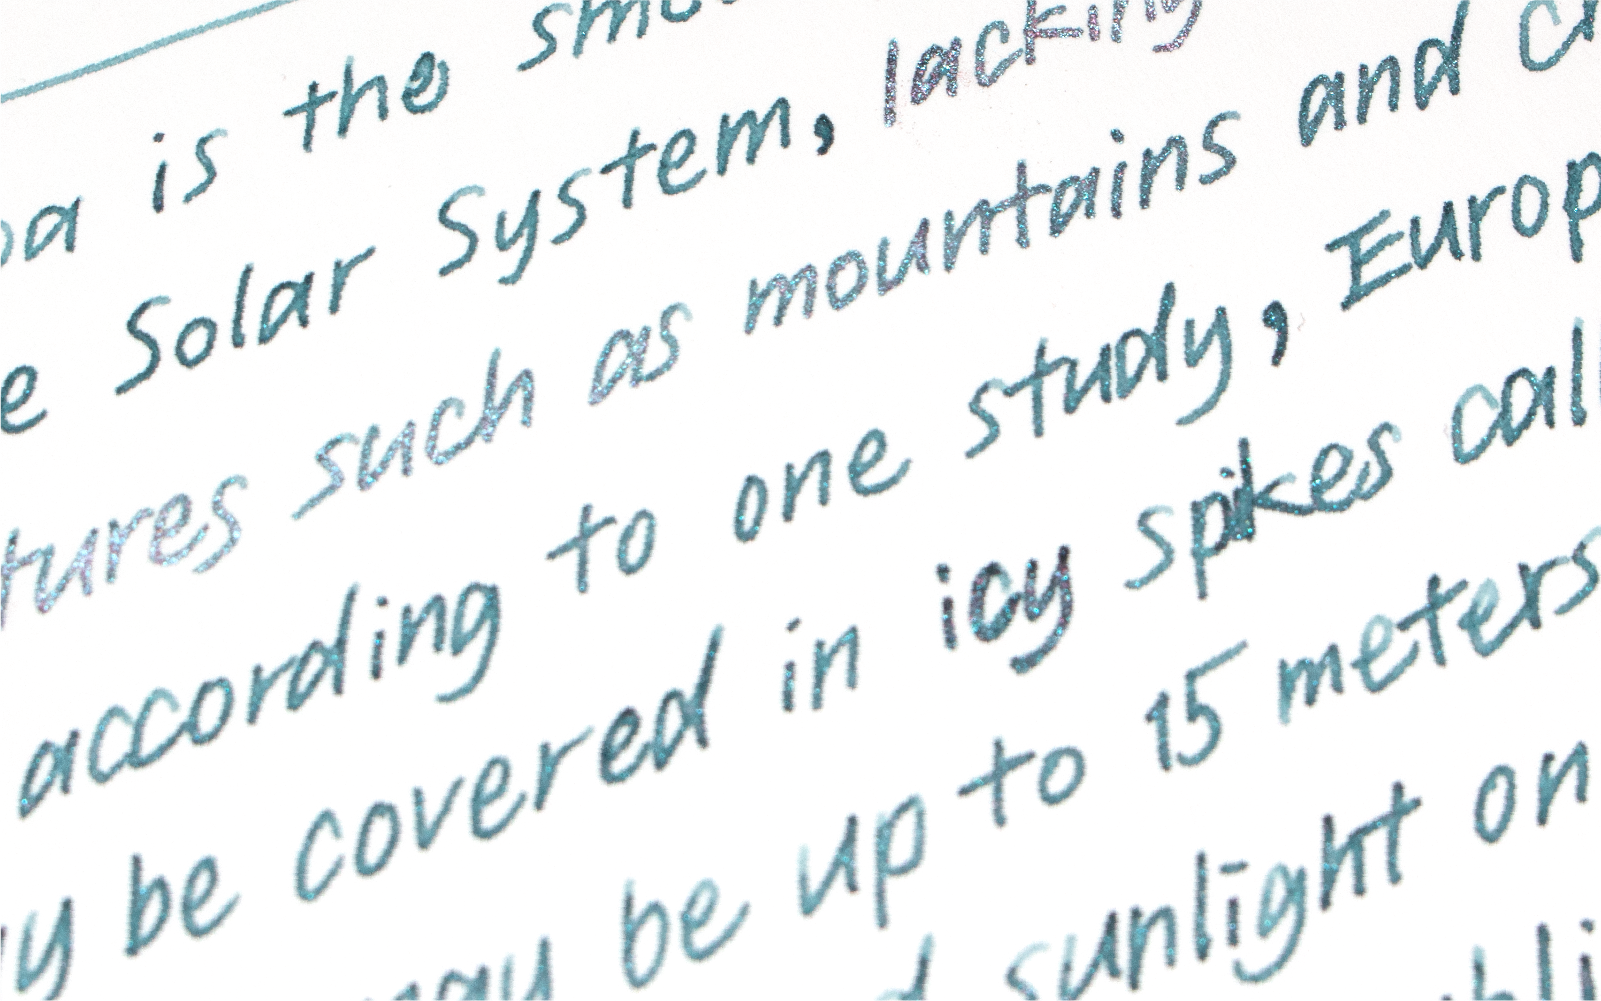 is the
e Solar System, lacking
tures such as mountains and
according to one study, Europ
be covered in icy spikes call
may be up to 15 meters
sunlight on